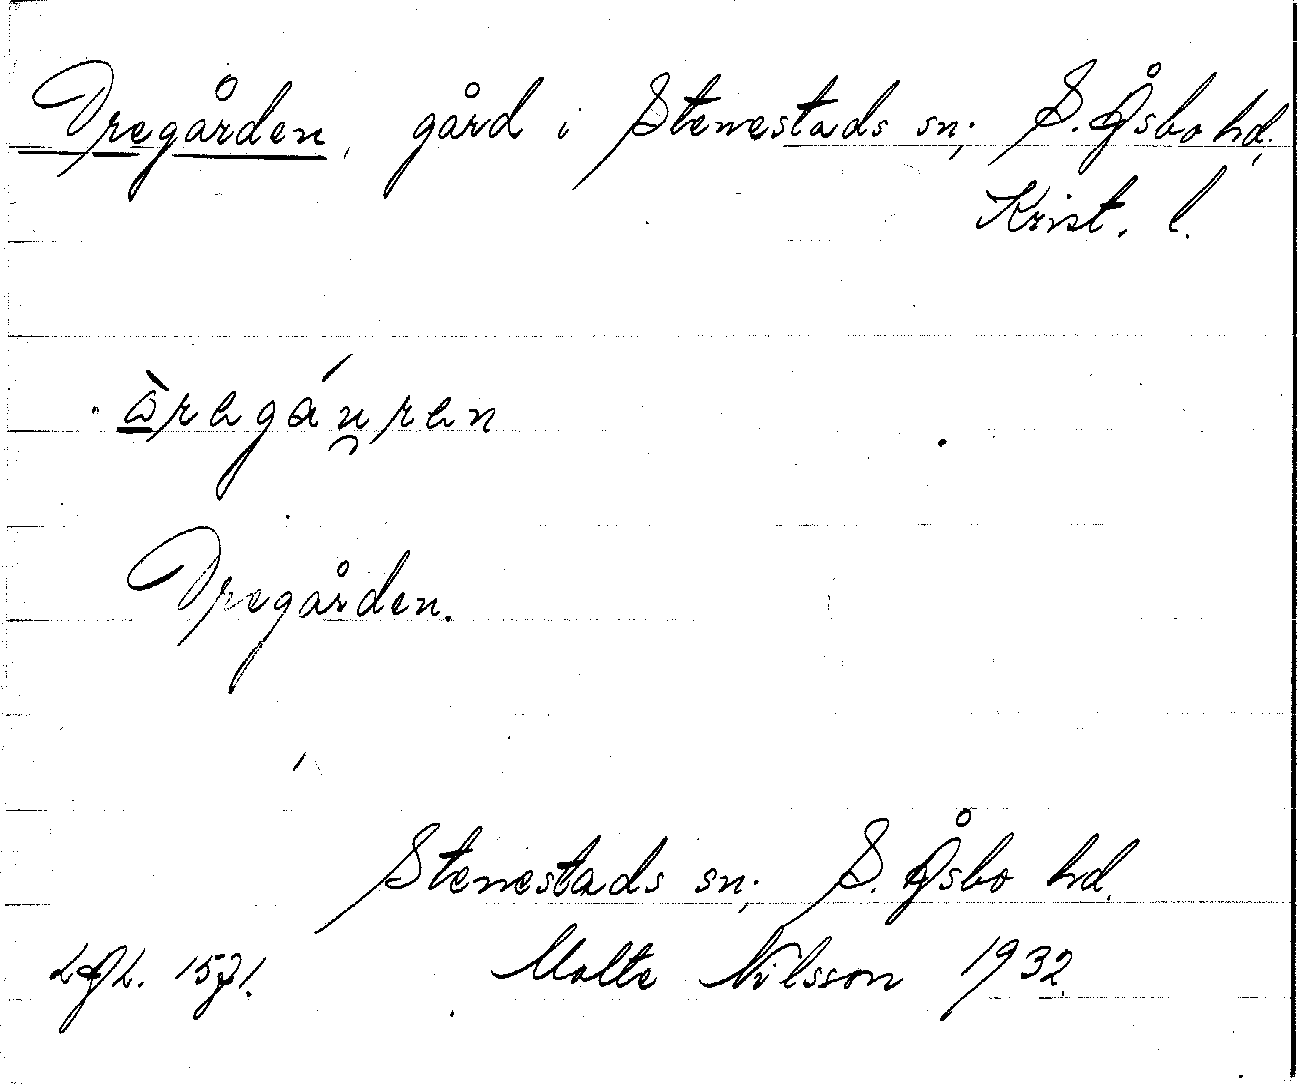 Dregården, gård i Stenestads sn; S. Åsbo hd.
Krist. l.
Dregården.
Stenestads sn; S. Åsbo hd.
LGL. 1571. Malte Nilsson 1932.